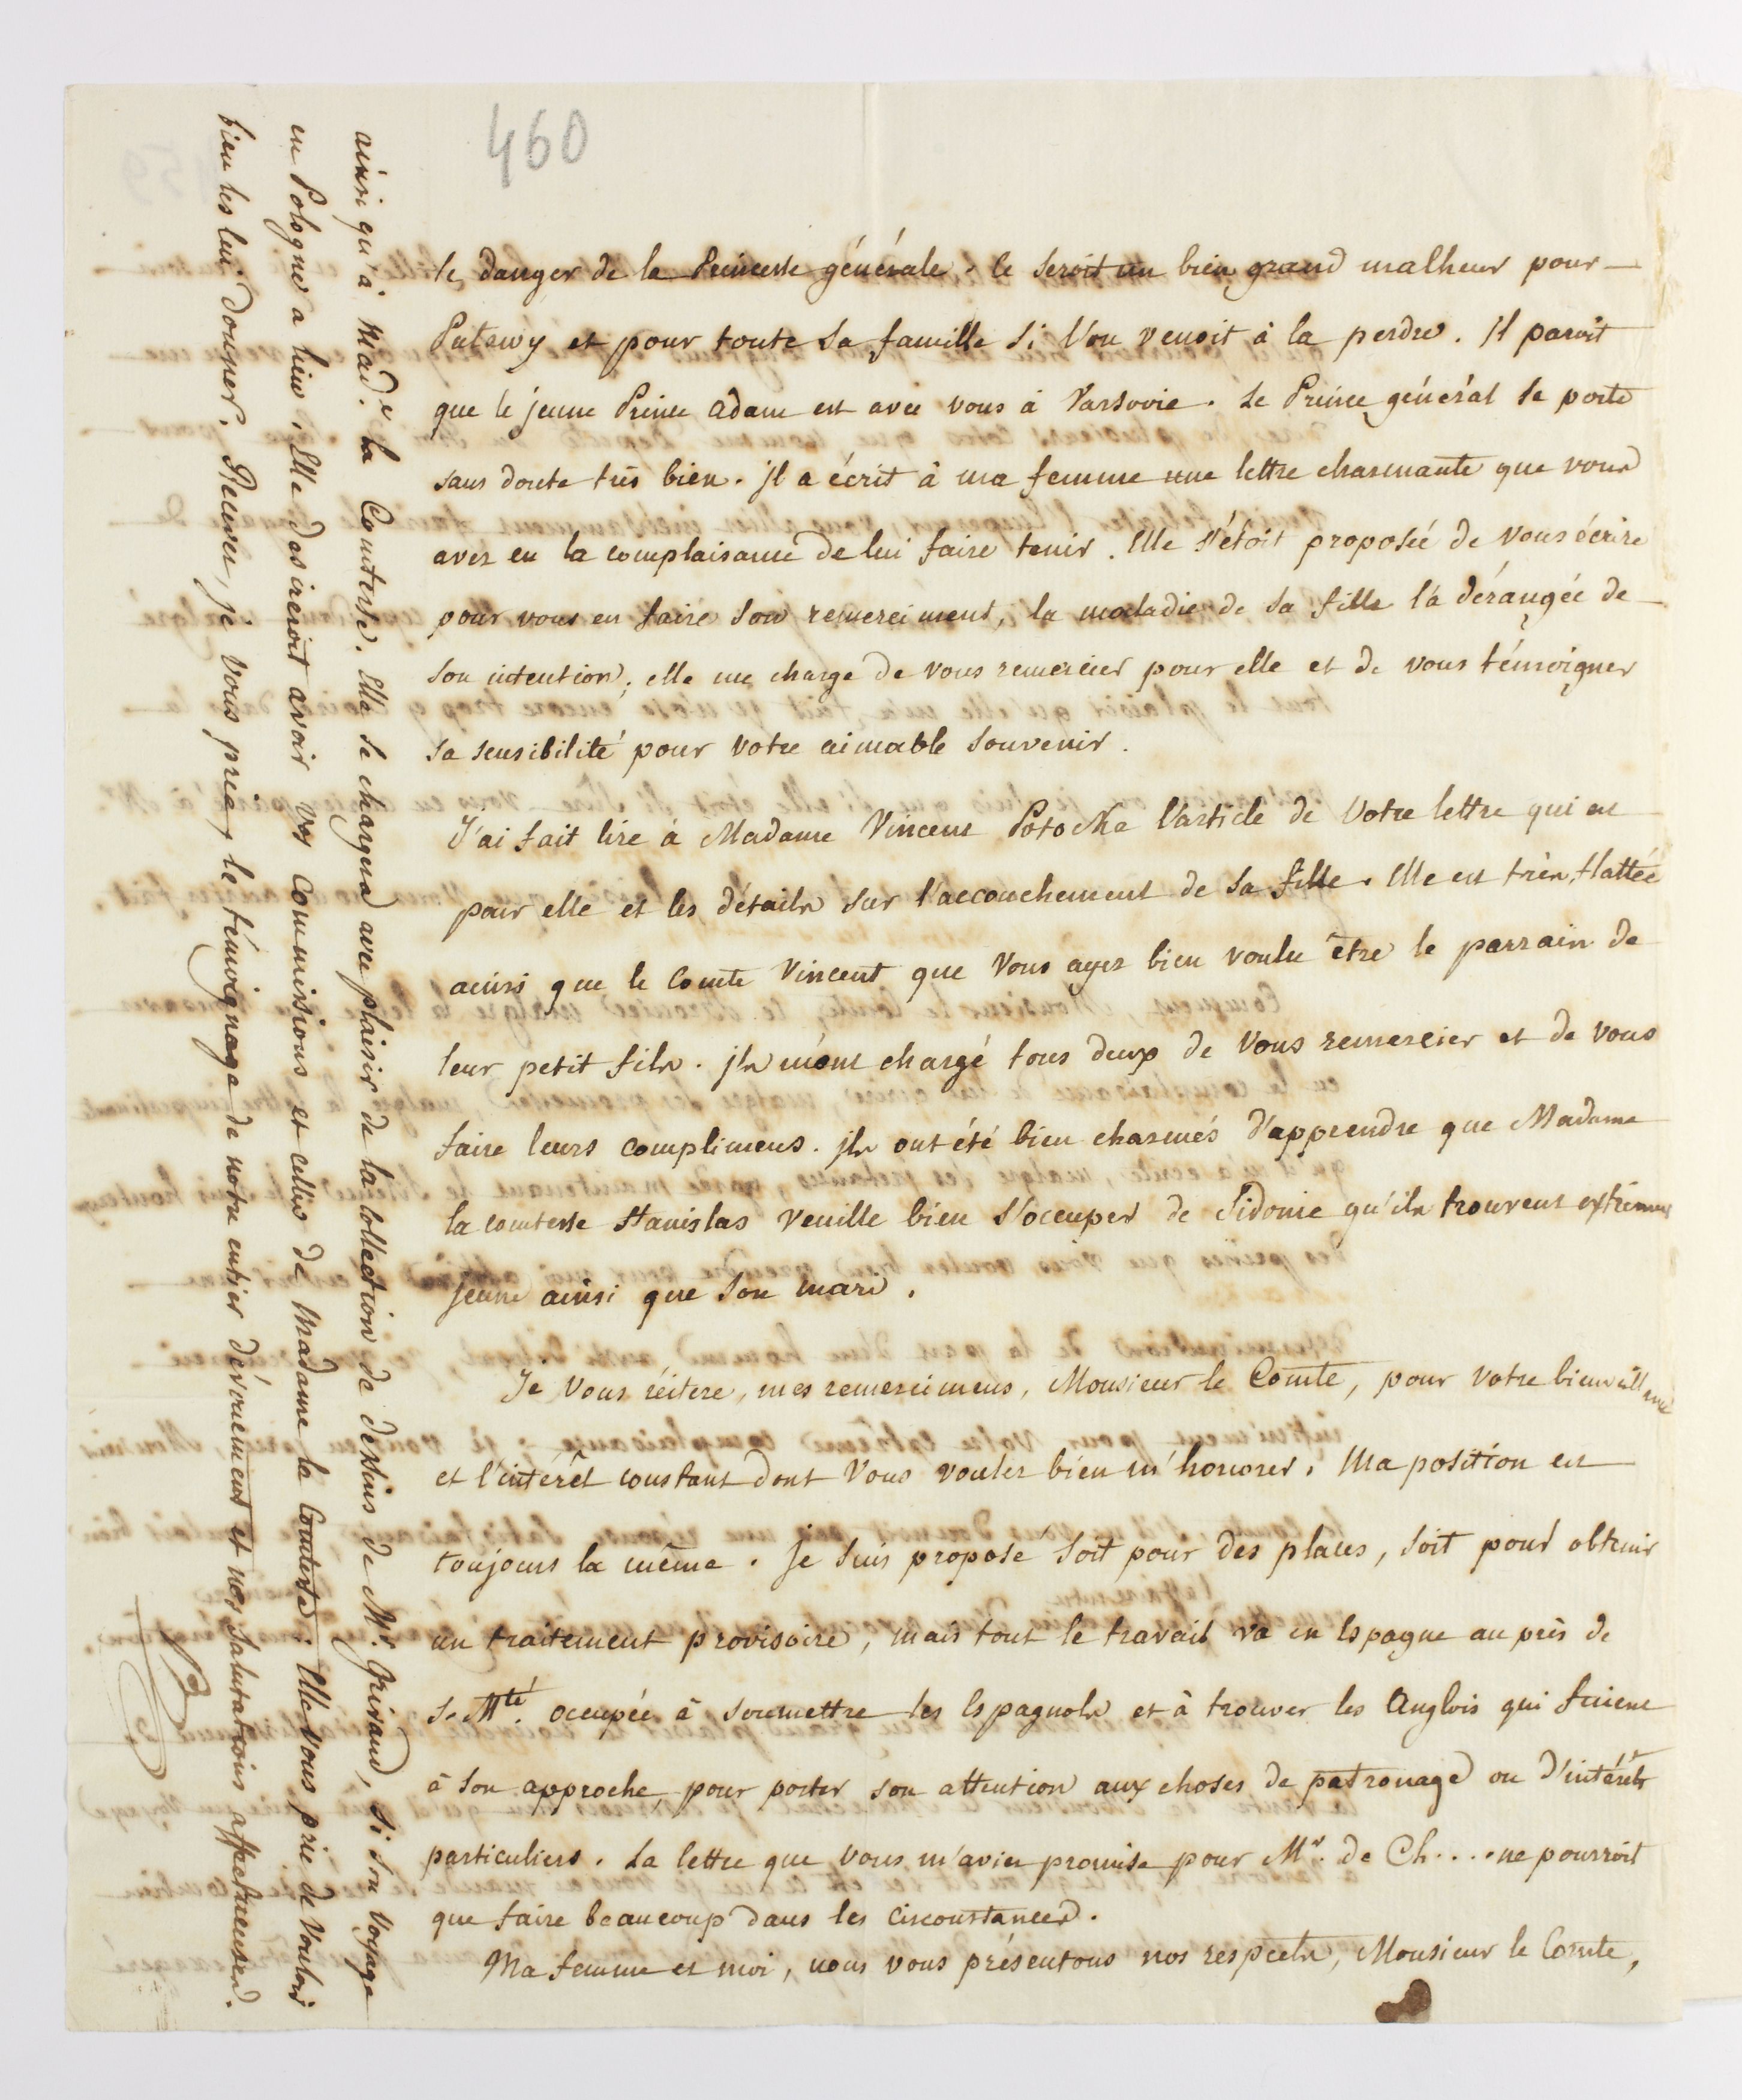 460
le danger de la Princesse générale. Ce seroit un bien grand malheur pour
Pulawy et pour toute sa famille si l'on venoit à la perdre. Il paroit
que le jeune Prince Adam est avec vous à Varsovie. Le Prince général se porte
sans doute très bien. Il a écrit à ma femme une lettre charmante que vous
avez eu la complaisance de lui faire tenir. Elle s'étoit proposée de vous écrire
pour vous en faire son remerciment, la maladie de sa fille l'a dérangée de
son intention; elle me charge de vous remercier pour elle et de vous témoigner
sa sensibilité pour votre aimable souvenir.
J'ai fait lire à Madame Vincent Potocka l'article de votre lettre qui est
pour elle et les détails sur l'accouchement de sa fille. Elle est très flattée
ainsi que le Comte Vincent que vous ayez bien voulu être le parrain de
leur petit fils. Ils m'ont chargé tous deux de vous remercier et de vous
faire leurs complimens. Ils ont été bien charmés d'apprendre que Madame
la comtesse Stanislas veuille bien s'occuper de Sidonie qu'ils trouvent extrêmement
jeune ainsi que son mari.
Je vous réitere, mes remercimens, Monsieur le Comte, pour votre bienveillance
et l'intérêt constant dont vous voulez bien m'honorer. Ma position est
toujours la même. Je suis proposé soit pour des places, soit pour obtenir
un traitement provisoire, mais tout le travail va en Espagne auprès de
S. Mté. occupée à soumettre les Espagnols et à trouver les Anglois qui fuient
à son approche, pour porter son attention aux choses de patronage ou d'intérêts
particuliers. La lettre que vous m'aviez promise pour Mr. de Ch.... ne pourroit
que faire beaucoup dans les circonstances.
Ma femme et moi, nous vous présentons nos respects, Monsieur le Comte,
ainsi qu'à Made. la Comtesse. Elle se chargera avec plaisir de la collection de dessins de Mr. Grivaud, si son voyage
en Pologne a lieu. Elle desireroit avoir vos commissions et celles de Madame la Comtesse. Elle vous prie de vouloir
bien les lui donner. Recevez, je vous prie, le témoignage de notre entier dévouement et nos salutations affectueuses.